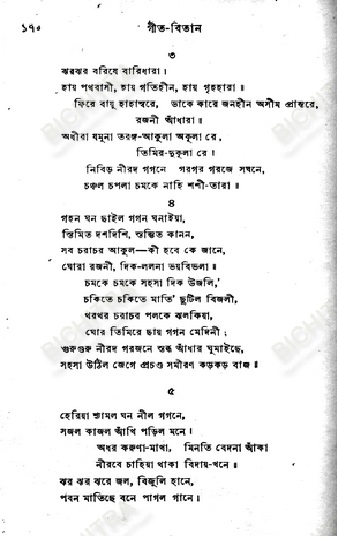 ১৭০ গীত-বিতান
৩
ঝরঝর বরিষে বারিধারা।
হায় পথবাসী, হায় গতিহীন, হায় গৃহহারা॥
ফিরে বায়ু হাহাস্বরে, ডাকে কারে জনহীন অসীম প্রান্তরে,
রজনী আঁধারা॥
অধীরা যমুনা তরঙ্গ-আকুলা অকূলা রে,
তিমির-দুকূলা রে।
নিবিড় নীরদ গগনে গরগর গরজে সঘনে,
চঞ্চল চপলা চমকে নাহি শশী-তারা॥
৪
গহন ঘন ছাইল গগন ঘনাইয়া,
স্তিমিত দশদিশি, স্তম্ভিত কানন,
সব চরাচর আকুল—কী হবে কে জানে,
ঘোরা রজনী, দিক-ললনা ভয়বিভলা॥
চমকে চমকে সহসা দিক উজলি,'
চকিতে চকিতে মাতি' ছুটিল বিজলী,
থরথর চরাচর পলকে ঝলকিয়া,
ঘোর তিমিরে ছায় গগন মেদিনী;
গুরুগুরু নীরদ গরজনে স্তব্ধ আঁধার ঘুমাইছে,
সহসা উঠিল জেগে প্রচণ্ড সমীরণ কড়কড় বাজ॥
৫
হেরিয়া শ্যামল ঘন নীল গগনে,
সজল কাজল আঁখি পড়িল মনে।
অধর করুণা-মাখা, মিনতি বেদনা আঁকা
নীরবে চাহিয়া থাকা বিদায়-খনে॥
ঝর ঝর ঝরে জল, বিজুলি হানে,
পবন মাতিছে বনে পাগল গানে।
BICHITRA